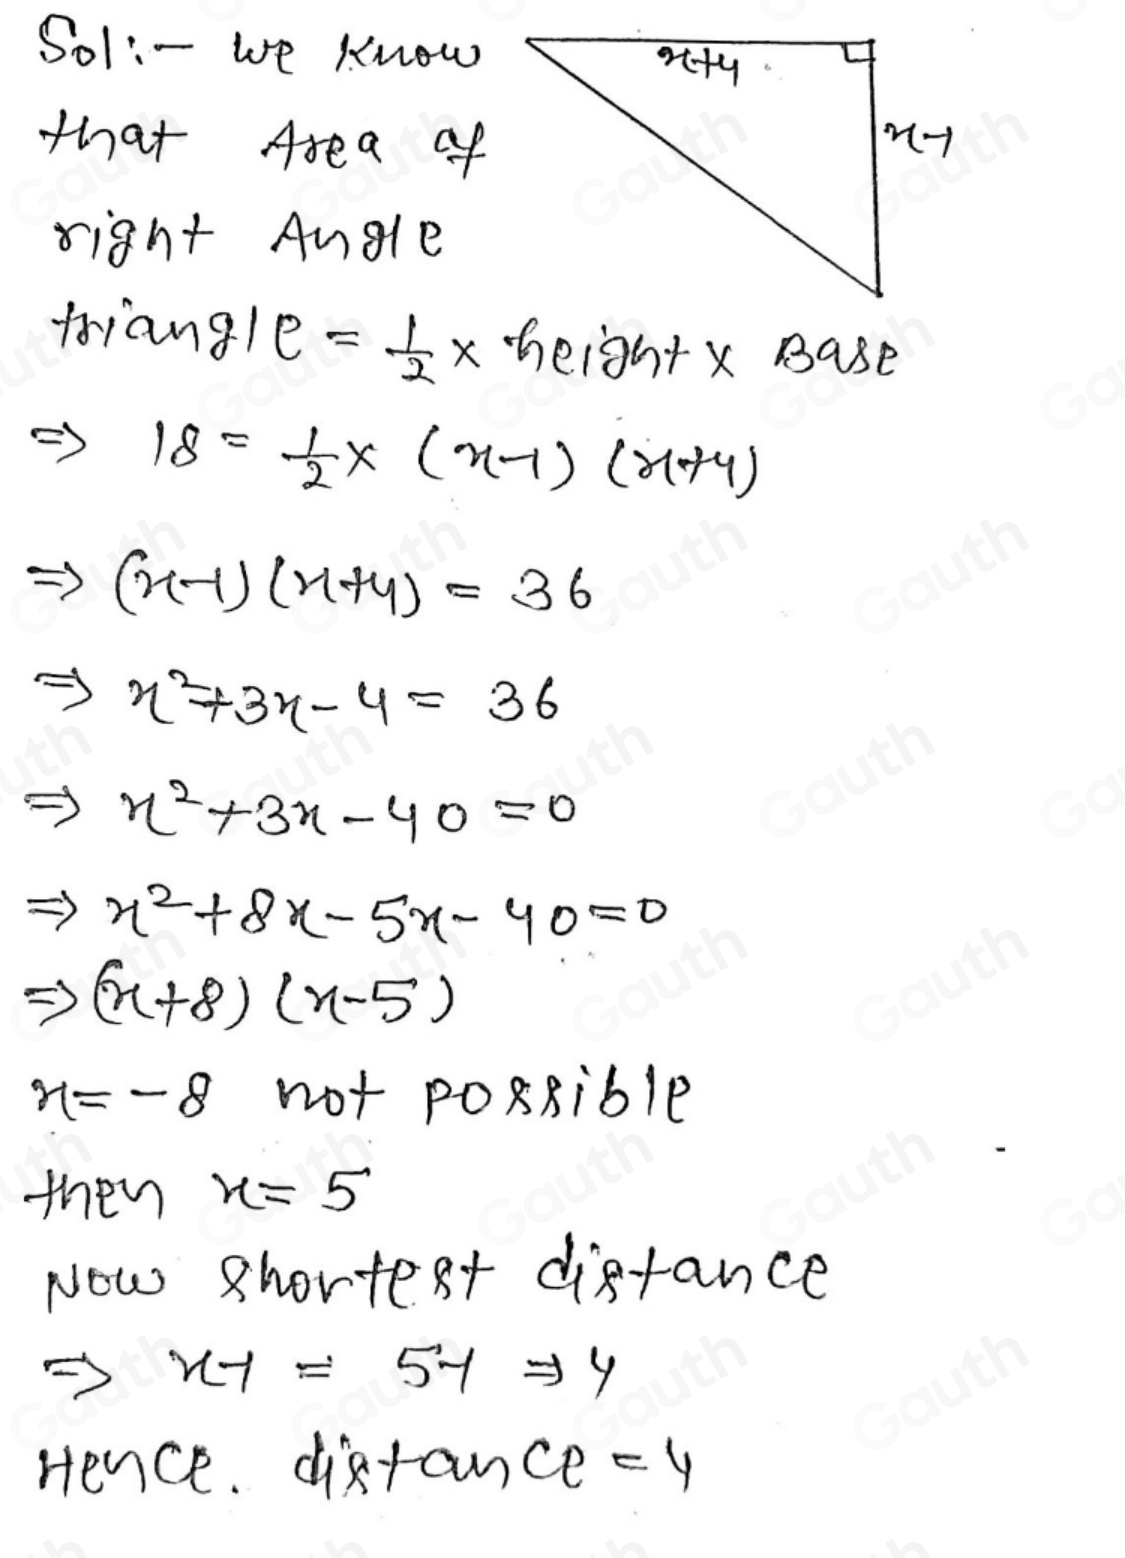 Sol:- we know
x+4
that Area of
x-1
right Angle
triangle = 1/2 × height × Base
⇒ 18 = 1/2 × (x-1) (x+4)
⇒ (x-1) (x+4) = 36
⇒ x²+3x-4 = 36
⇒ x²+3x-40=0
⇒ x²+8x-5x-40=0
⇒ (x+8) (x-5)
x=-8 not possible
then x=5
Now shortest distance
⇒ x-1 = 5-1 ⇒ 4
Hence. distance = 4
Gauth